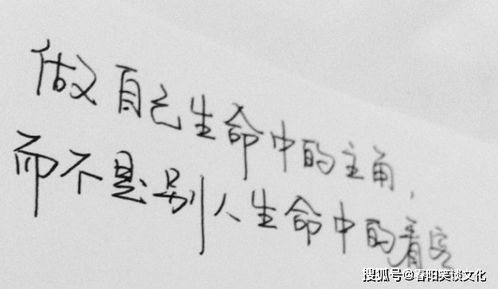 做自己生命中的主角，
而不是别人生命中的看客
搜狐号@春阳笑谈文化